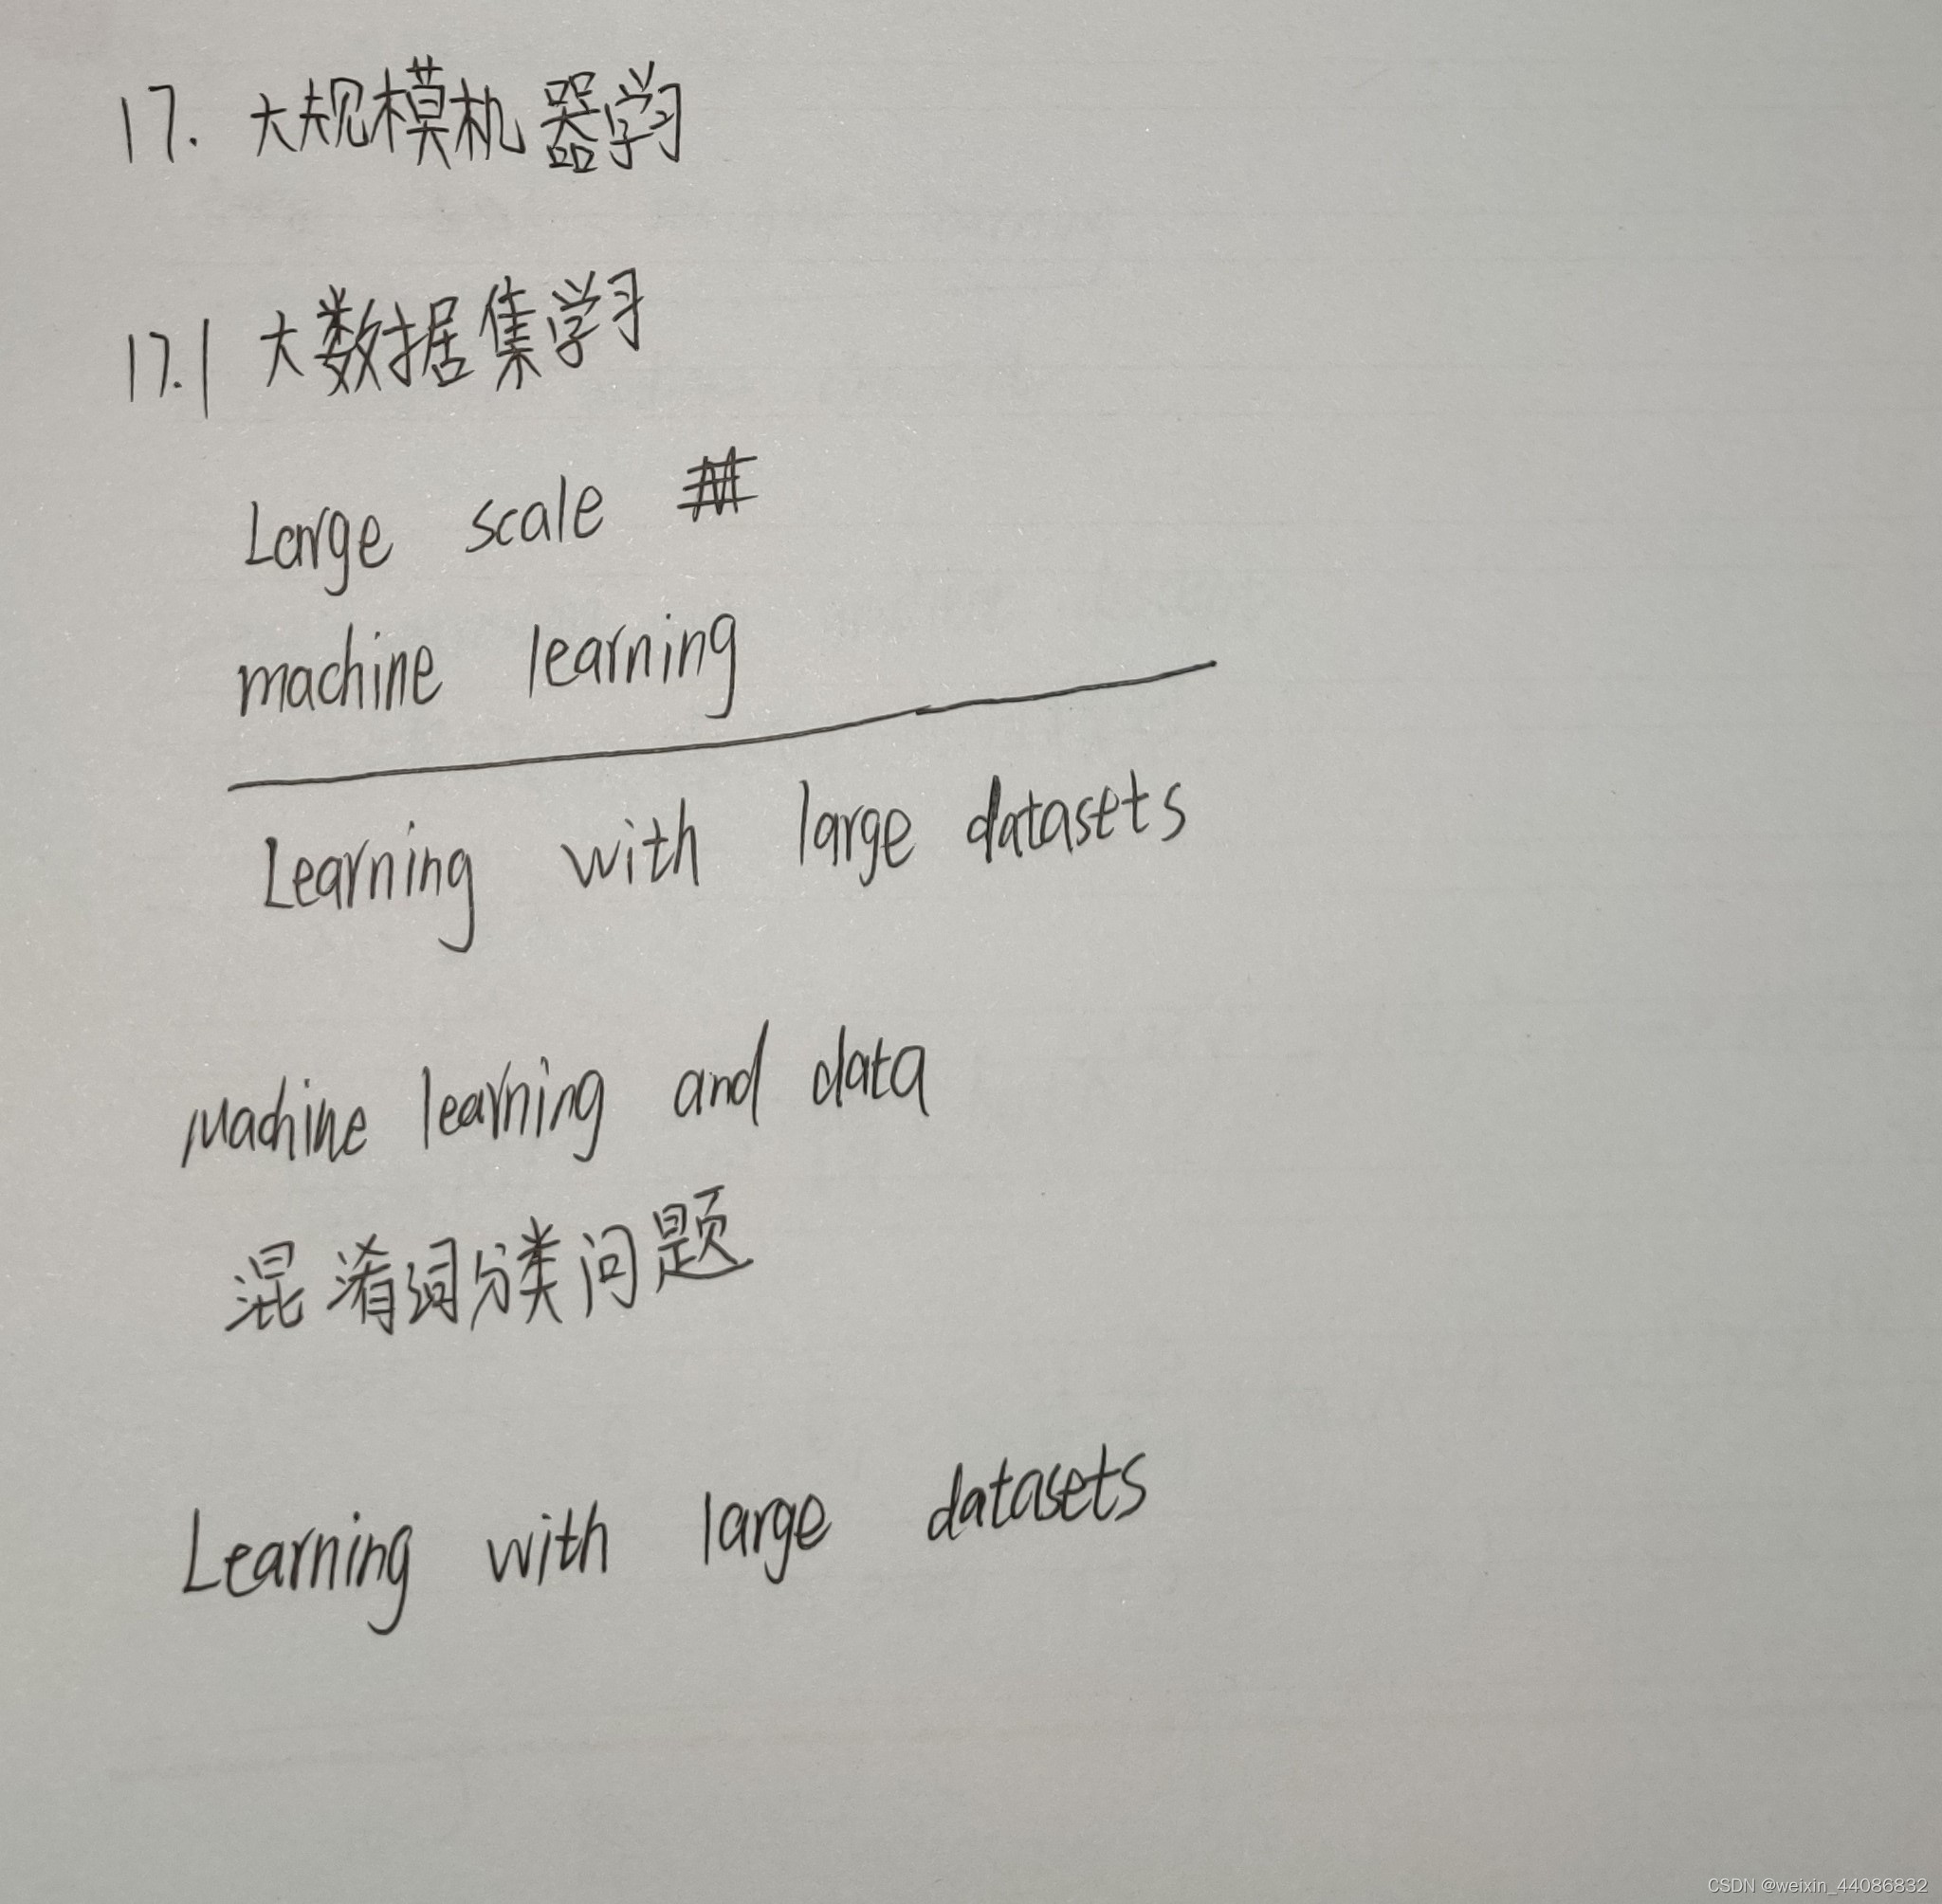 17. 大规模机器学习
17.1 大数据集学习
Large scale
machine learning
Learning with large datasets
Machine learning and data
混淆词分类问题
Learning with large datasets
CSDN @weixin_44086832